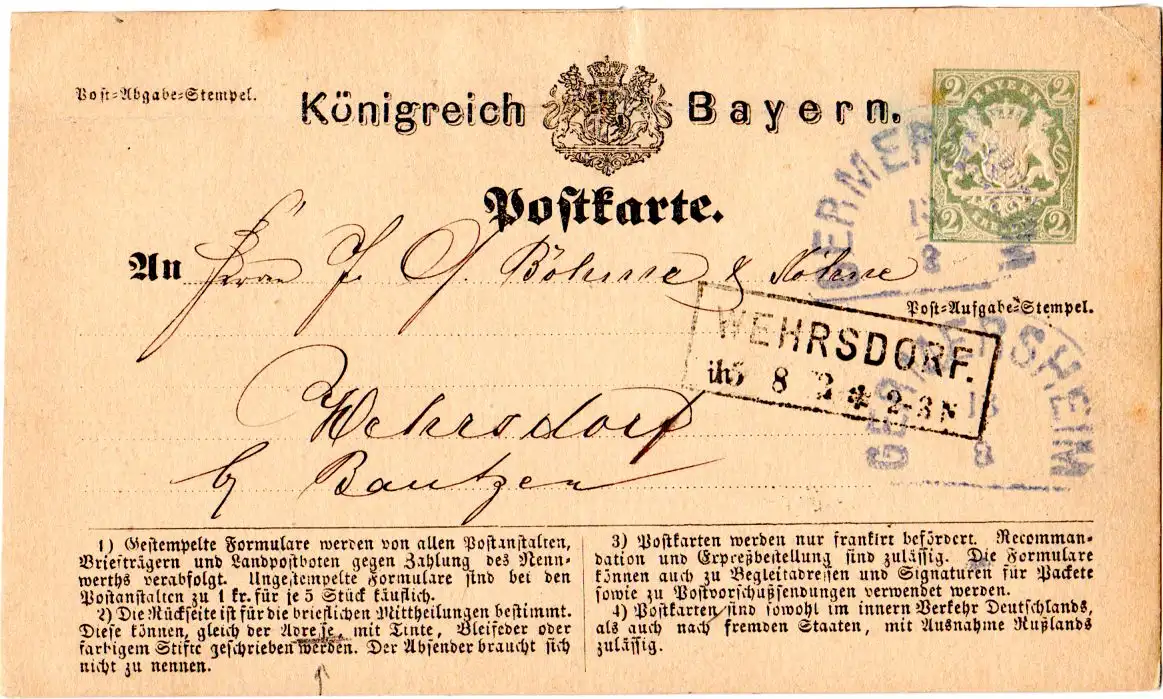 Post-Abgabe-Stempel.
Königreich Bayern.
2 2
BAYERN
2 2
Postkarte.
GERMER
8
An Herrn J. G. Böhme & Söhne
Post-Aufgabe-Stempel.
WEHRSDORF.
8 2 * 2-3 N
GERMERSHEIM
18
8
Wehrsdorf
b/ Bautzen
1) Gestempelte Formulare werden von allen Postanstalten,
Briefträgern und Landpostboten gegen Zahlung des Nenn-
werths verabfolgt. Ungestempelte Formulare sind bei den
Postanstalten zu 1 kr. für je 5 Stück käuflich.
2) Die Rückseite ist für die brieflichen Mittheilungen bestimmt.
Diese können, gleich der Adresse, mit Tinte, Bleifeder oder
farbigem Stifte geschrieben werden. Der Absender braucht sich
nicht zu nennen.
3) Postkarten werden nur frankirt befördert. Recomman-
dation und Expreßbestellung sind zulässig. Die Formulare
können auch zu Begleitadressen und Signaturen für Packete
sowie zu Postvorschußsendungen verwendet werden.
4) Postkarten sind sowohl im innern Verkehr Deutschlands,
als auch nach fremden Staaten, mit Ausnahme Rußlands
zulässig.